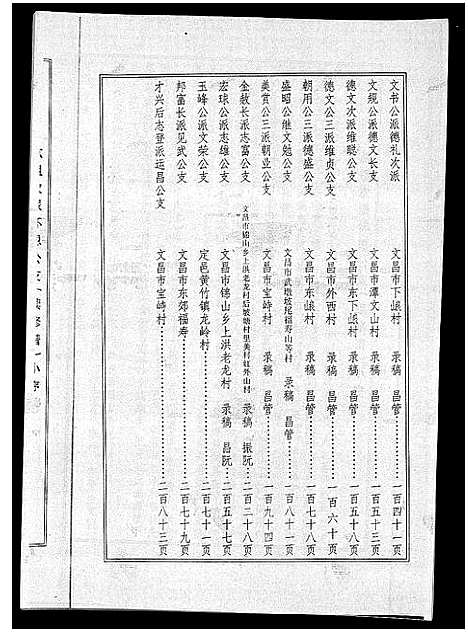 文书公派德礼次派 文昌市下崀村 录稿 昌管 一百四十一页
文绲公派德文长支 文昌市潭文山村 录稿 昌管 一百五十三页
德文次派维聪公支 文昌市东下崀村 录稿 昌管 一百五十八页
德文公三派维贞公支 文昌市外西村 录稿 昌管 一百六十页
朝用公三派德盛公支 文昌市东崀村 录稿 昌管 一百七十八页
盛昭公继文勉公支 文昌市武墩坡尾福寿山等村 录稿 昌管 一百八十一页
美实公三派朝业公支 文昌市宝峙村 录稿 昌管 一百九十四页
金敖长派志富公支 文昌市锦山乡上洪老龙村后坡塘村里美村虹外山村 录稿 振阮 二百二十八页
宏球公派志雄公支 文昌市锦山乡上洪老龙村 录稿 昌阮 二百五十七页
玉峰公派文荣公支 定邑黄竹镇龙岭村 二百七十一页
邦富长派见武公支 文昌市东郊福寿 二百七十九页
才兴后志登派运昌公支 文昌市宝峙村 二百八十三页